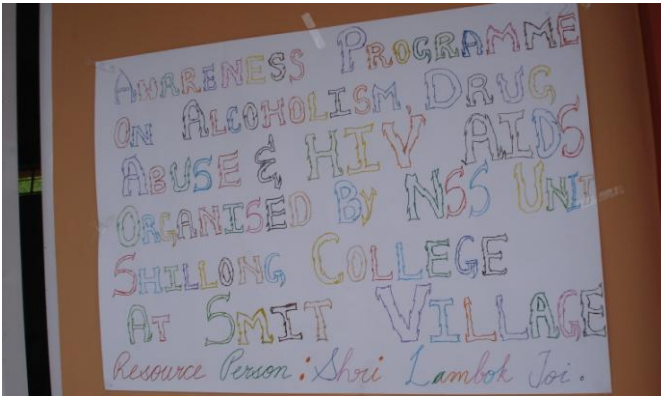 AWARENESS PROGRAMME
ON ALCOHOLISM, DRUG
ABUSE & HIV AIDS
ORGANISED BY NSS UNIT
SHILLONG COLLEGE
AT SMIT VILLAGE
Resource Person : Shri Lambok Joi.